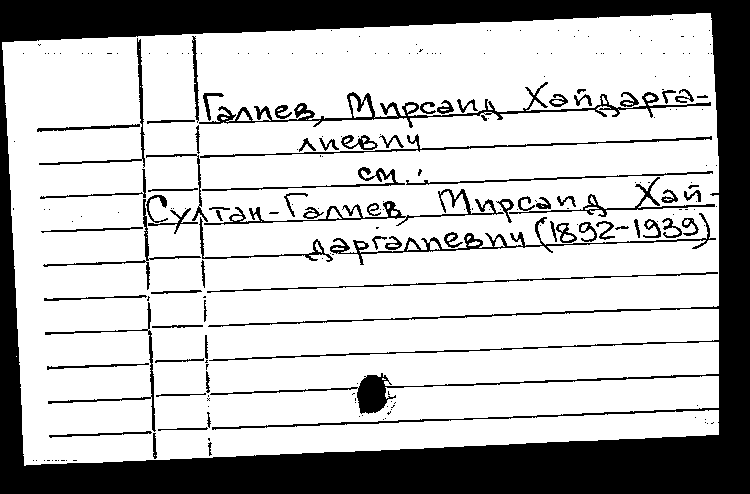 Галиев, Мирсаид Хайдарга-
лиевич
см.:
Султан-Галиев, Мирсаид Хай-
даргалиевич (1892-1939)